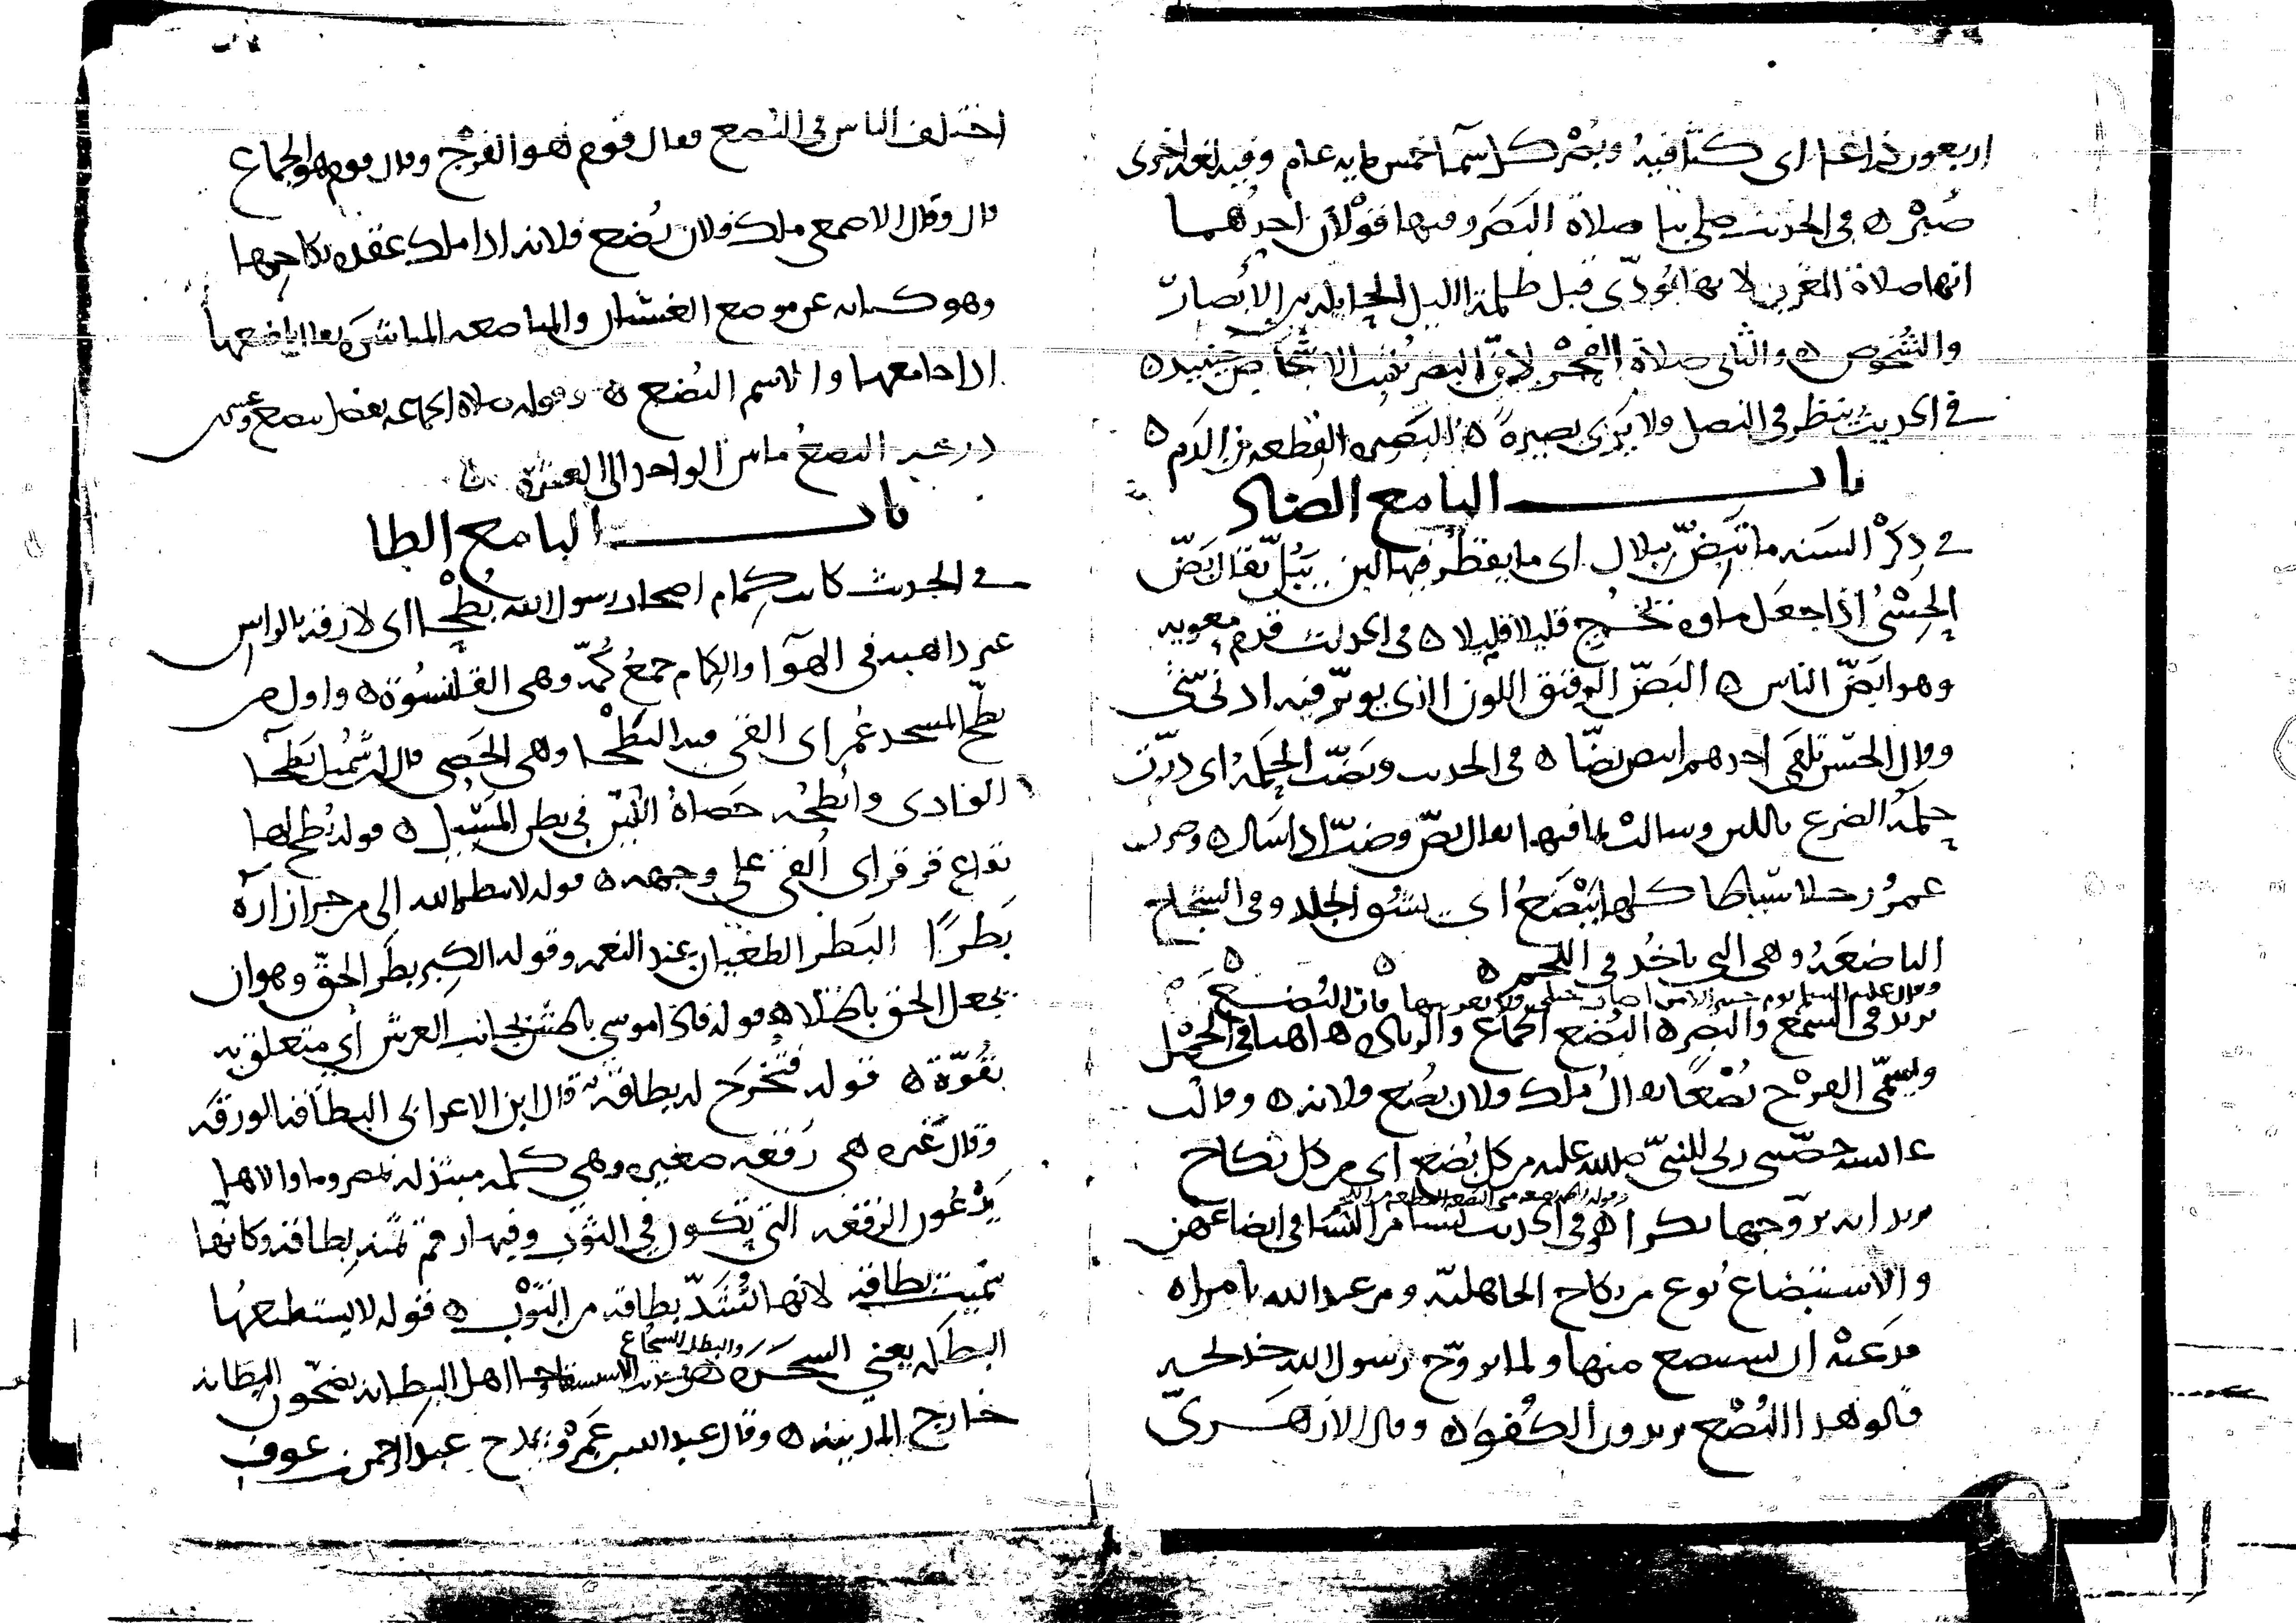 اربعون ذراعا اى كثافته وبصر كل سمآ خمس مايه عام وفيه لغه اخرى
صُبْر ه فى الحديث صلى بنا صلاة البَصَر وفيها قولان احدهما
انها صلاة المغرب لانها تؤدّى قبل ظلمة الليل الحايله بين الابصار
والشُخوص ه والثانى صلاة الفجر لان البصر يثبت الاشخاص حينيذ ه
فى الحديث ينظر فى النصل ولا يرى بصيره ه البصيره القطعه من الدم ه
باب البا مع الضاد
فى ذكر السَنه ما تَبِضّ ببلال اى ما يقطر فيها لبن يقال بَضّ
الحِسْىُ اذا جعل ماوه يخرج قليلا قليلا ه فى الحديث قدم معويه
وهو ابَضّ الناس ه البَضّ الرقيق اللون الذى يوثر فيه ادنى شئ
وقال الحسن تلقى احدهم ابيض بضّا ه فى الحديث وبَضّت الحلمه اى درّت
حلمَة الضرع باللبن وسالت بما فيها يقال بضّ وضبّ اذا سال ه وضرب
عمرُ رجلا سياطا كلها يَبْضَعُ اى يشق الجلد وفى الشجاج
الباضعَه وهى التى تاخُذ فى اللحم ه
يريد فى السمع والبصر ه البُضع الجماع
ويسمّى الفرج بُضْعًا يقال مَلك فلان بُضع فلانه ه وقالت
عائشه حصّننى ربى للنبىّ صلى الله عليه من كل بُضع اى من كل نكاح
يريد انه تزوجها بكرا ه وفى الحديث تستامر النسا فى ابضاعهن
والاستبضاع نوع من نكاح الجاهليّه ومر عبدالله بامراه
فدَعته ان يستبضع منها ولما تزوج رسول الله خديجه
قالوا هذا البُضْع يريدون الكُفو ه وقال الازهَرىّ
اختلف الناس فى البُضع فقال قوم هو الفرْج وقال قوم هو الجماع
قال وقال الاصمعى ملك فلان بُضع فلانه اذا ملك عقده نكاحها
وهو كنايه عن موضع الغشيان والمباضعه المباشره يقال باضعها
اذا جامعها والاسم البُضع ه وقوله صلاة الجماعه تفضل ببضع وعشرين
درجه البضعُ ما بين الواحد الى العشره ه
باب البا مع الطا
فى الحديث كانت كِمام اصحاب رسول الله بُطْحا اى لازقه بالراس
غير ذاهبه فى الهوآ والكِمام جمعُ كُمّه وهى القلنسُوة ه واول من
بطّح المسجد عُمر اى القى فيه البَطْحا وهى الحَصى قال ابن شُمَيل بَطْحآ
الوادى وابطحُه حَصاهُ اللّيّن فى بطن المَسِيل ه قوله بُطح لها
بقاع قرقر اى القى على وجهه ه قوله لا ينظر الله الى من جر ازاره
بَطرًا البَطَر الطغيان عند النعمه وقوله الكِبر بطَر الحقّ وهو ان
يجعل الحق باطلا ه قوله فاذا موسى باطش بجانب العرش أى متعلق به
بقُوّة ه قوله فتُخرَج له بطاقة قال ابن الاعرابى البطاقه الورقه
وقال غيره هى رُقعه صغيره وهى كلمه مبتذله بمصر وما والاها
يَدْعُون الرقعه التى تكون فى الثوب وفيها رقم ثمنه بطاقه وكانّها
سُمّيت بطاقه لانها تُشَدّ بطاقه من الثوب ه قوله لا يستطيعُها
البطَله يعنى السحَره ه والبطل الشجاع
وجا اهل البطانه يضجّون البطانه
خارج المدينه ه وقال عبدالله بن عَمرو يمدح عبد الرحمن بن عوف